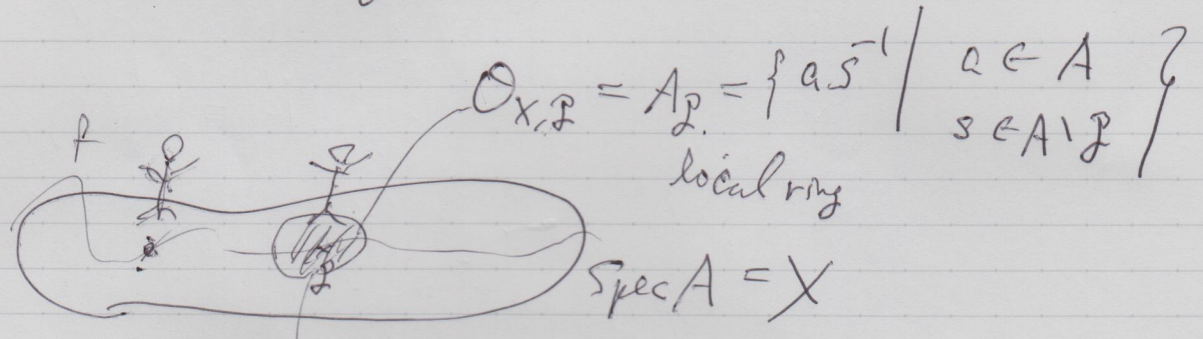 O_{X,p} = A_p = { a s^{-1} | a ∈ A
s ∈ A \ p }
local ring
f
p
Spec A = X